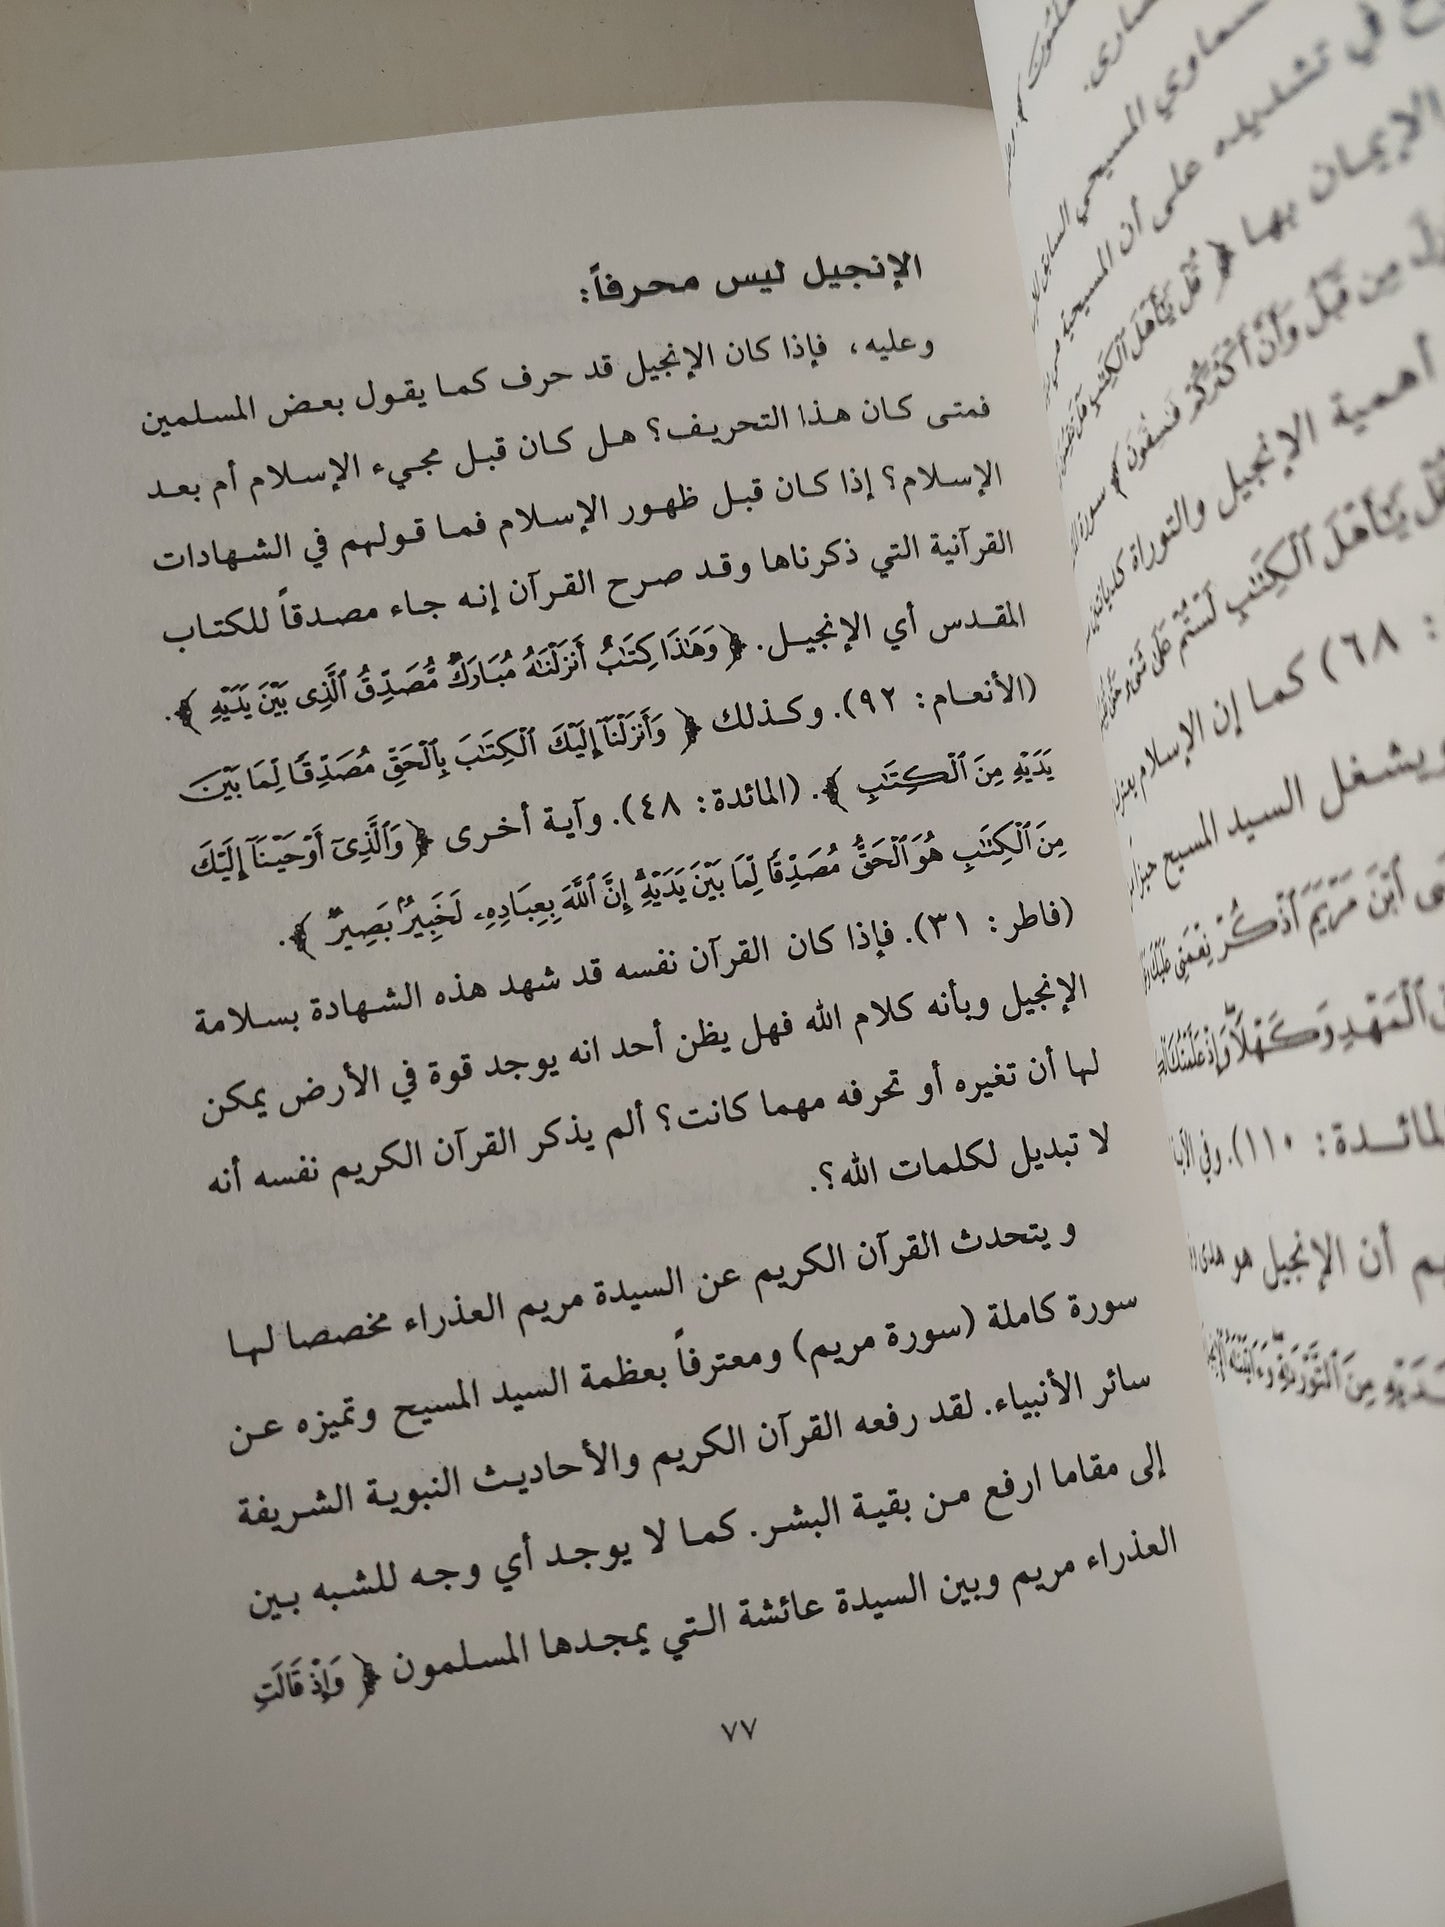 الإنجيل ليس محرفاً:
وعليه، فإذا كان الإنجيل قد حرف كما يقول بعض المسلمين
فمتى كان هذا التحريف؟ هل كان قبل مجيء الإسلام أم بعد
الإسلام؟ إذا كان قبل ظهور الإسلام فما قولهم في الشهادات
القرآنية التي ذكرناها وقد صرح القرآن إنه جاء مصدقاً للكتاب
المقدس أي الإنجيل. ﴿ وَهَٰذَا كِتَٰبٌ أَنزَلْنَٰهُ مُبَارَكٌ مُّصَدِّقُ ٱلَّذِى بَيْنَ يَدَيْهِ ﴾.
(الأنعام: ٩٢). وكذلك ﴿ وَأَنزَلْنَآ إِلَيْكَ ٱلْكِتَٰبَ بِٱلْحَقِّ مُصَدِّقًا لِّمَا بَيْنَ
يَدَيْهِ مِنَ ٱلْكِتَٰبِ ﴾. (المائدة: ٤٨). وآية أخرى ﴿ وَٱلَّذِىٓ أَوْحَيْنَآ إِلَيْكَ
مِنَ ٱلْكِتَٰبِ هُوَ ٱلْحَقُّ مُصَدِّقًا لِّمَا بَيْنَ يَدَيْهِ ۗ إِنَّ ٱللَّهَ بِعِبَادِهِۦ لَخَبِيرٌۢ بَصِيرٌ ﴾.
(فاطر: ٣١). فإذا كان القرآن نفسه قد شهد هذه الشهادة بسلامة
الإنجيل وبأنه كلام الله فهل يظن أحد انه يوجد قوة في الأرض يمكن
لها أن تغيره أو تحرفه مهما كانت؟ ألم يذكر القرآن الكريم نفسه أنه
لا تبديل لكلمات الله؟.
ويتحدث القرآن الكريم عن السيدة مريم العذراء مخصصا لها
سورة كاملة (سورة مريم) ومعترفاً بعظمة السيد المسيح وتميزه عن
سائر الأنبياء. لقد رفعه القرآن الكريم والأحاديث النبوية الشريفة
إلى مقاما ارفع من بقية البشر. كما لا يوجد أي وجه للشبه بين
العذراء مريم وبين السيدة عائشة التي يمجدها المسلمون ﴿ وَإِذْ قَالَتِ
٧٧
في تشديده على أن المسيحية
الإيمان بها ﴿ قُلْ يَٰٓأَهْلَ ٱلْكِتَٰبِ
مِن قَبْلُ وَأَنَّ أَكْثَرَكُمْ فَٰسِقُونَ ﴾ سورة
أهمية الإنجيل والتوراة
يَٰٓأَهْلَ ٱلْكِتَٰبِ لَسْتُمْ عَلَىٰ شَىْءٍ
: ٦٨) كما إن الإسلام
ويشغل السيد المسيح
ٱبْنَ مَرْيَمَ ٱذْكُرْ نِعْمَتِى عَلَيْكَ
ٱلْمَهْدِ وَكَهْلًا ۖ وَإِذْ عَلَّمْتُكَ
: ١١٠). وفي
أن الإنجيل هو هدى
مِنَ ٱلتَّوْرَىٰةِ ۖ وَءَاتَيْنَٰهُ